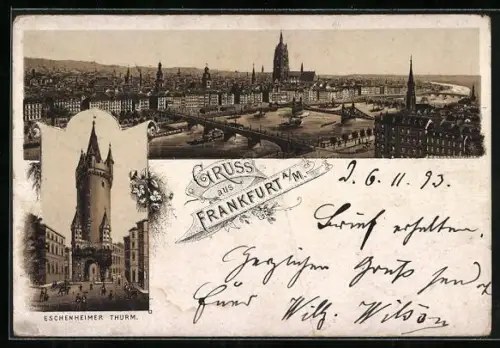 GRUSS
aus
FRANKFURT A/M.
ESCHENHEIMER THURM.
D. 6. 11. 93.
Brief erhalten.
Herzlichen Gruß send
Wilh. Wilson